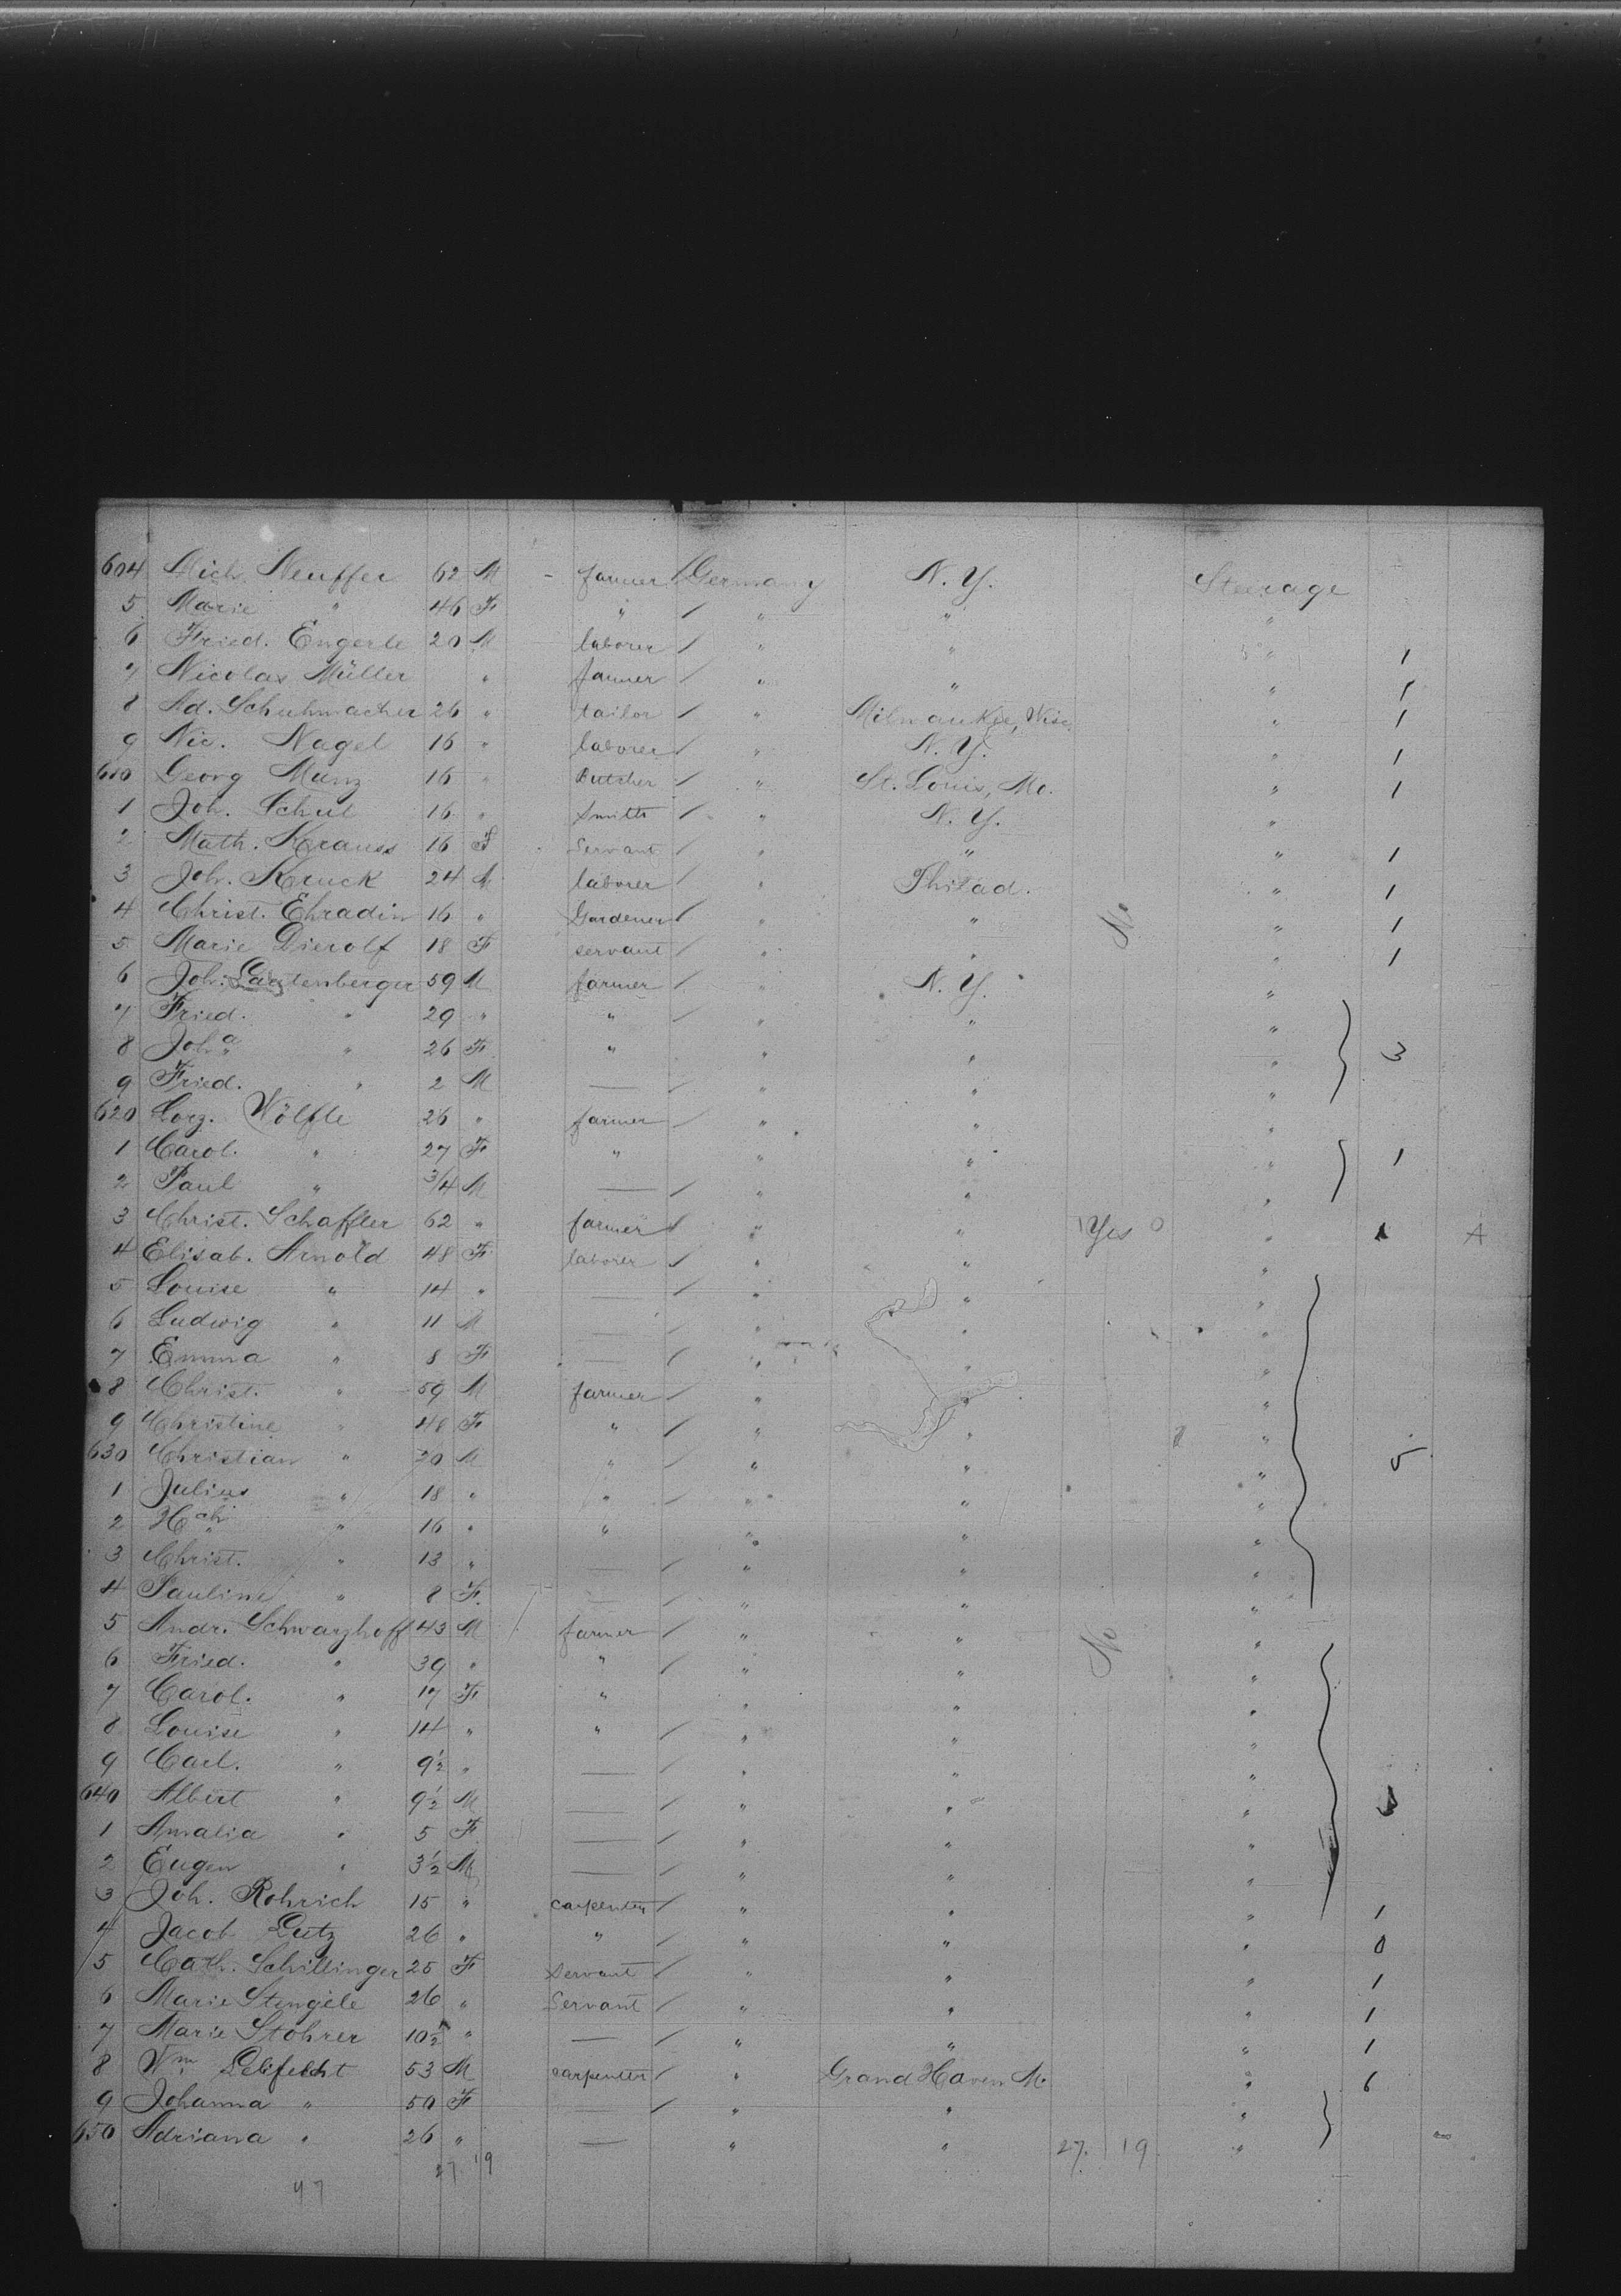 604 Mich. Neuffer 62 M - farmer / Germany N. Y. Steerage
5 Marie " 46 F " / " " "
6 Fried. Engerle 20 M laborer / " " " 1
7 Nicolas Müller " farmer / " " " 1
8 Ad. Schuhmacher 26 " tailor / " Milwaukee, Wisc. " 1
9 Nic. Nagel 16 " laborer / " N. Y. " 1
610 Georg Munz 16 " Butcher / " St. Louis, Mo. " 1
1 Joh. Schul 16 " Smith / " N. Y. "
2 Math. Krauss 16 F Servant / " " " 1
3 Joh. Kruck 24 M laborer / " Philad. " 1
4 Christ. Ehradin 16 " Gardener / " " No " 1
5 Marie Dierolf 18 F servant / " " " 1
6 Joh. Lautenberger 59 M farmer / " N. Y. "
7 Fried. " 29 " " / " " "
8 Joha " 26 F " " " " 3
9 Fried. " 2 M — / " " "
620 Lorz. Wölfle 26 " farmer / " " "
1 Carol. " 27 F " " " " 1
2 Paul " 3/4 M — / " " "
3 Christ. Schaffler 62 " farmer / " " Yes 0 " 1 A
4 Elisab. Arnold 48 F laborer / " " "
5 Louise " 14 " — / " " "
6 Ludwig " 11 M — / " " "
7 Emma " 8 F — / " " "
8 Christ. " 59 M farmer / " " "
9 Christine " 48 F " / " " "
630 Christian " 20 M " / " " " 5
1 Julius " 18 " " / " " "
2 Hch " 16 " " " " "
3 Christ. " 13 " — / " " "
4 Pauline " 8 F. — / " " "
5 Andr. Schwarzhoff 43 M farmer / " " No "
6 Fried. " 39 " " / " " "
7 Carol. " 17 F " " " "
8 Louise " 14 " " / " " "
9 Carl. " 9½ " — " " "
640 Albert " 9½ M — / " " " 3
1 Amalia " 5 F — / " " "
2 Eugen " 3½ M — / " " "
3 Joh. Rohrich 15 " carpenter / " " " 1
4 Jacob Lutz 26 " " / " " " 0
5 Cath. Schillinger 25 F servant / " " " 1
6 Marie Stengele 26 " Servant / " " " 1
7 Marie Stohrer 10½ " — / " " " 1
8 Wm Lebfecht 53 M carpenter / " Grand Haven M. " 6
9 Johanna " 50 F — / " " "
650 Adriana " 26 " — " " 27. 19 "
27 19
47